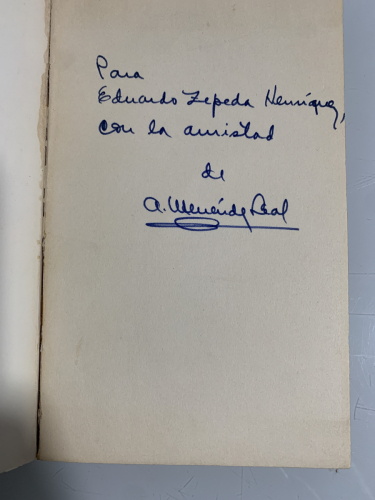 Para
Eduardo Zepeda Henríquez,
con la amistad
de
A. Menéndez Leal